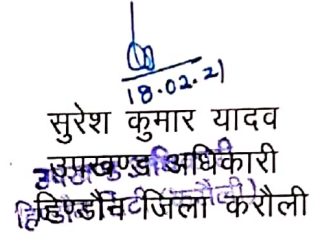 18.02.21
सुरेश कुमार यादव
उपखण्ड अधिकारी
हिण्डौन जिला करौली